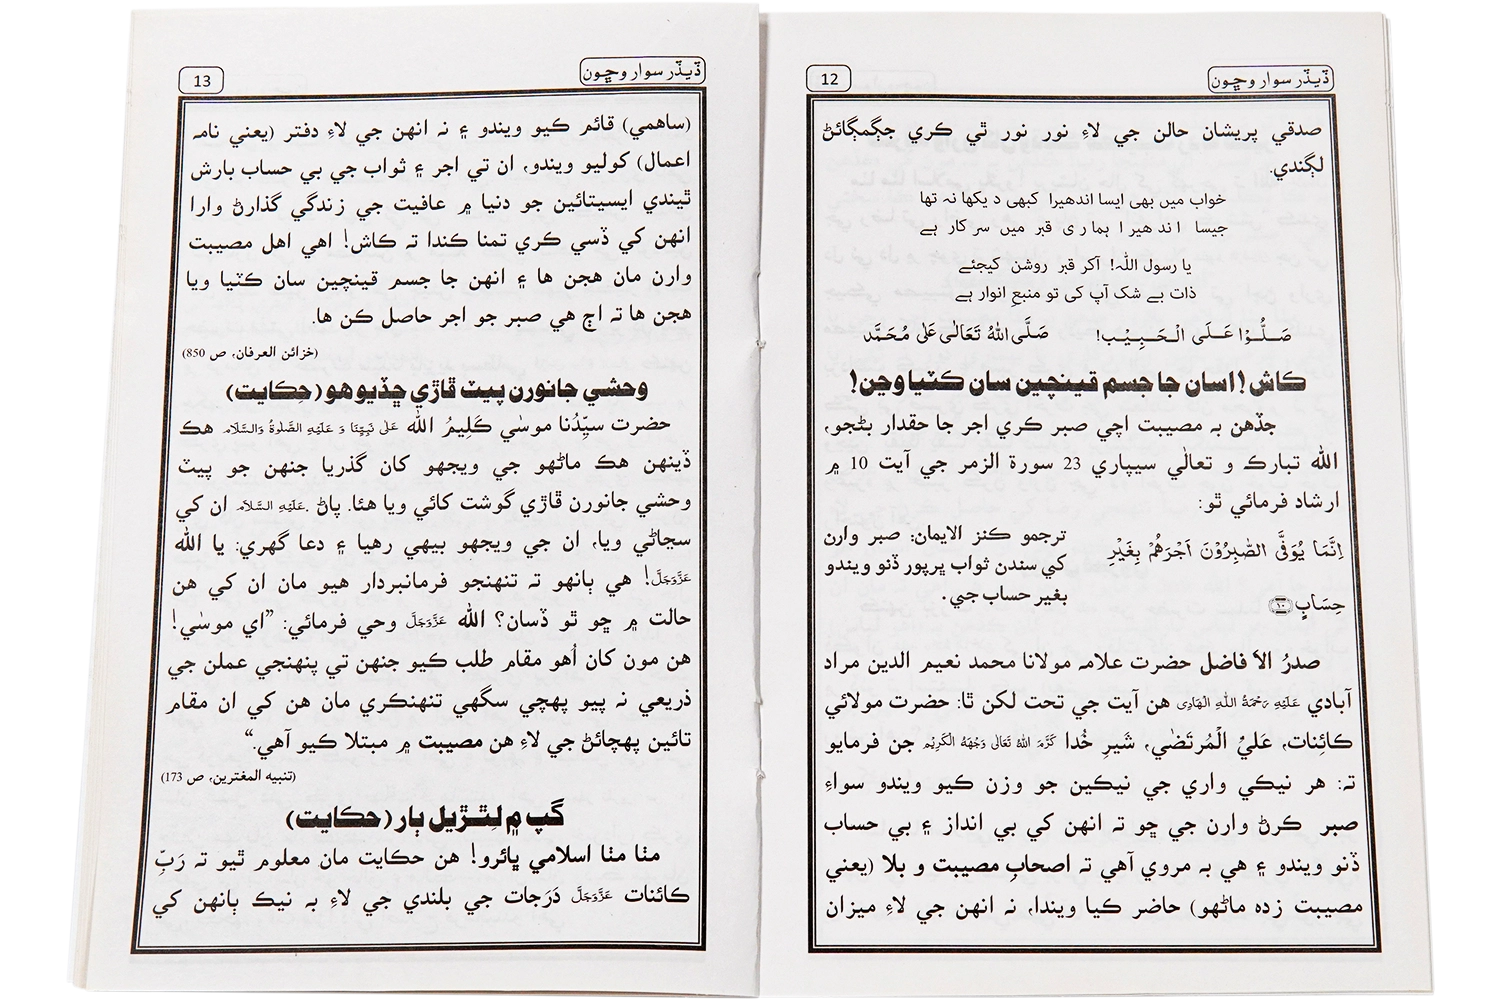 12
ڏيڏر سوار وڇون
صدقي پريشان حالن جي لاءِ نور نور ٿي ڪري جڳمڳائڻ
لڳندي.
خواب میں بھی ایسا اندھیرا کبھی دیکھا نہ تھا
جیسا اندھیرا ہماری قبر میں سرکار ہے
یا رسول اللہ! آکر قبر روشن کیجئے
ذات بے شک آپ کی تو منبعِ انوار ہے
صَلُّوْا عَلَى الْحَبِيْب! صَلَّى اللهُ تَعَالٰى عَلٰى مُحَمَّد
ڪاش! اسان جا جسم قينچين سان ڪٽيا وڃن!
جڏهن به مصيبت اچي صبر ڪري اجر جا حقدار بڻجو،
الله تبارڪ و تعالٰي سيپاري 23 سورة الزمر جي آيت 10 ۾
ارشاد فرمائي ٿو:
اِنَّمَا يُوَفَّى الصّٰبِرُوْنَ اَجْرَهُمْ بِغَيْرِ
حِسَابٍ ﴿۱۰﴾
ترجمو ڪنز الايمان: صبر وارن
کي سندن ثواب ڀرپور ڏنو ويندو
بغير حساب جي.
صدرُ الاَفاضل حضرت علامه مولانا محمد نعيم الدين مراد
آبادي عَلَيْهِ رَحْمَةُ اللهِ الْهَادِى هن آيت جي تحت لکن ٿا: حضرت مولائي
ڪائِنات، عَليُ الْمُرتَضٰي، شَيرِ خُدا كَرَّمَ اللهُ تَعَالٰى وَجْهَهُ الْكَرِيْم جن فرمايو
ته: هر نيڪي واري جي نيڪين جو وزن ڪيو ويندو سواءِ
صبر ڪرڻ وارن جي ڇو ته انهن کي بي انداز ۽ بي حساب
ڏنو ويندو ۽ هي به مروي آهي ته اصحابِ مصيبت و بلا (يعني
مصيبت زده ماڻهو) حاضر ڪيا ويندا، نه انهن جي لاءِ ميزان
13
ڏيڏر سوار وڇون
(ساهمي) قائم ڪيو ويندو ۽ نه انهن جي لاءِ دفتر (يعني نامه
اعمال) کوليو ويندو، ان تي اجر ۽ ثواب جي بي حساب بارش
ٿيندي ايسيتائين جو دنيا ۾ عافيت جي زندگي گذارڻ وارا
انهن کي ڏسي ڪري تمنا ڪندا ته ڪاش! اهي اهل مصيبت
وارن مان هجن ها ۽ انهن جا جسم قينچين سان ڪٽيا ويا
هجن ها ته اڄ هي صبر جو اجر حاصل ڪن ها.
(خزائن العرفان، ص 850)
وحشي جانورن پيٽ ڦاڙي ڇڏيو هو (حِڪايت)
حضرت سيِّدُنا موسٰي ڪَلِيمُ الله عَلٰى نَبِيِّنَا وَ عَلَيْهِ الصَّلٰوةُ وَالسَّلَام هڪ
ڏينهن هڪ ماڻهو جي ويجهو کان گذريا جنهن جو پيٽ
وحشي جانورن ڦاڙي گوشت کائي ويا هئا. پاڻ عَلَيْهِ السَّلَام ان کي
سڃاڻي ويا، ان جي ويجهو بيهي رهيا ۽ دعا گهري: يا الله
عَزَّوَجَلَّ! هي ٻانهو ته تنهنجو فرمانبردار هيو مان ان کي هن
حالت ۾ ڇو ٿو ڏسان؟ الله عَزَّوَجَلَّ وحي فرمائي: ”اي موسٰي!
هن مون کان اُهو مقام طلب ڪيو جنهن تي پنهنجي عملن جي
ذريعي نه پيو پهچي سگهي تنهنڪري مان هن کي ان مقام
تائين پهچائڻ جي لاءِ هن مصيبت ۾ مبتلا ڪيو آهي.“
(تنبيه المغترين، ص 173)
گپ ۾ لِٿڙيل ٻار (حڪايت)
مٺا مٺا اسلامي ڀائرو! هن حڪايت مان معلوم ٿيو ته رَبِّ
ڪائنات عَزَّوَجَلَّ دَرَجات جي بلندي جي لاءِ به نيڪ ٻانهن کي